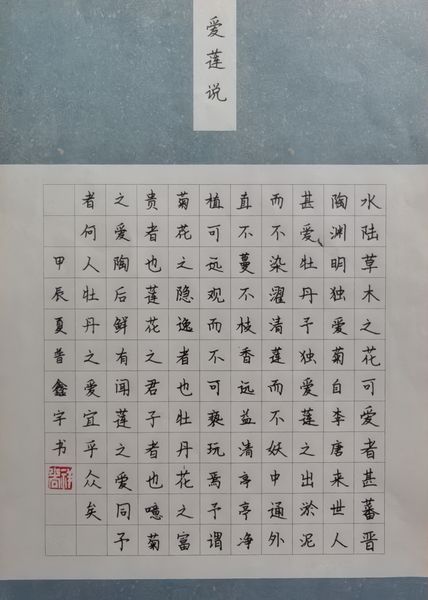 爱莲说
水陆草木之花可爱者甚蕃晋
陶渊明独爱菊自李唐来世人
甚爱牡丹予独爱莲之出淤泥
而不染濯清莲而不妖中通外
直不蔓不枝香远益清亭亭净
植可远观而不可亵玩焉予谓
菊花之隐逸者也牡丹花之富
贵者也莲花之君子者也噫菊
之爱陶后鲜有闻莲之爱同予
者何人牡丹之爱宜乎众矣
甲辰夏普鑫宇书